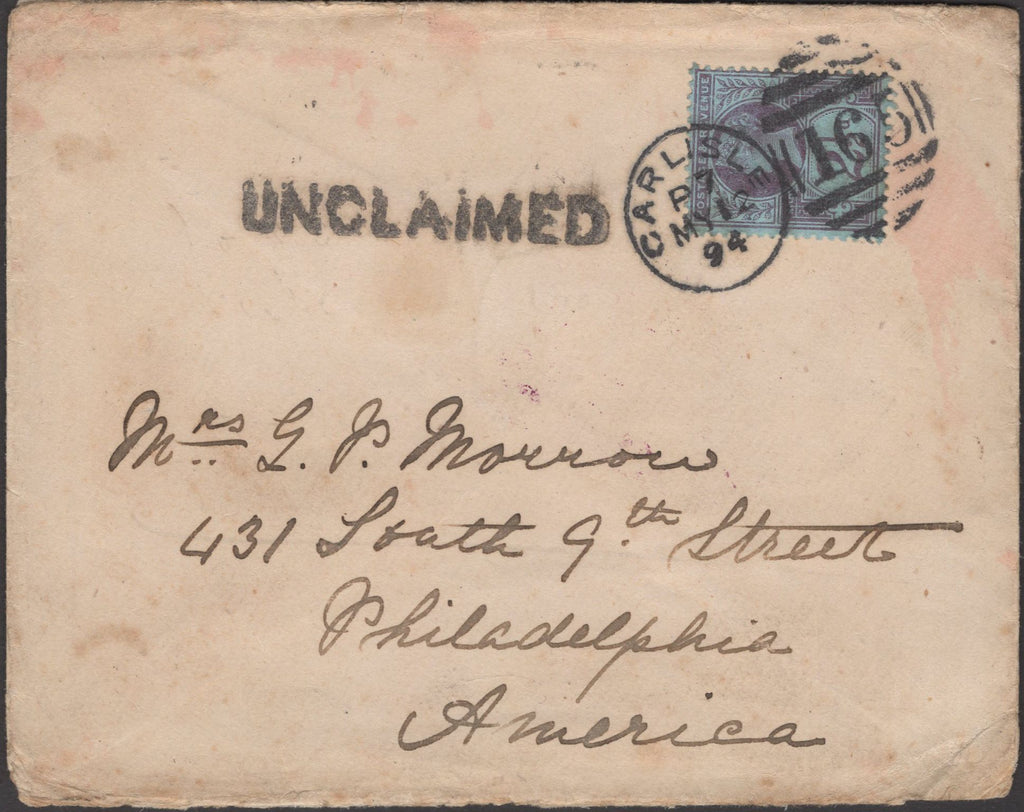 UNCLAIMED
CARLISLE
P7
MY 12
94
165
Mrs G. P. Morrow
431 South 9th Street
Philadelphia
America